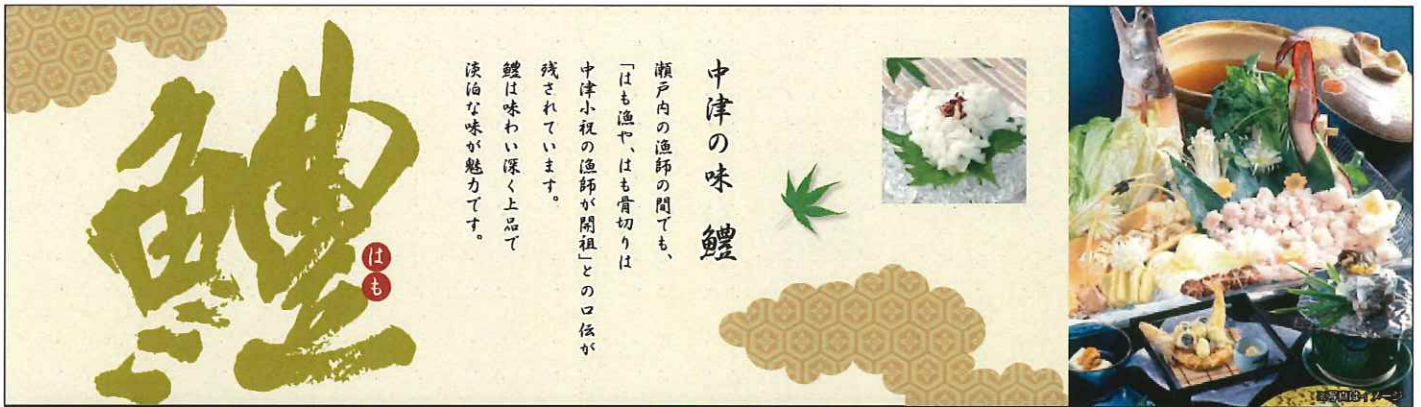 中津の味 鱧
瀬戸内の漁師の間でも、
「はも漁や、はも骨切りは
中津小祝の漁師が開祖」との口伝が
残されています。
鱧は味わい深く上品で
淡泊な味が魅力です。
鱧
はも
※写真はイメージ